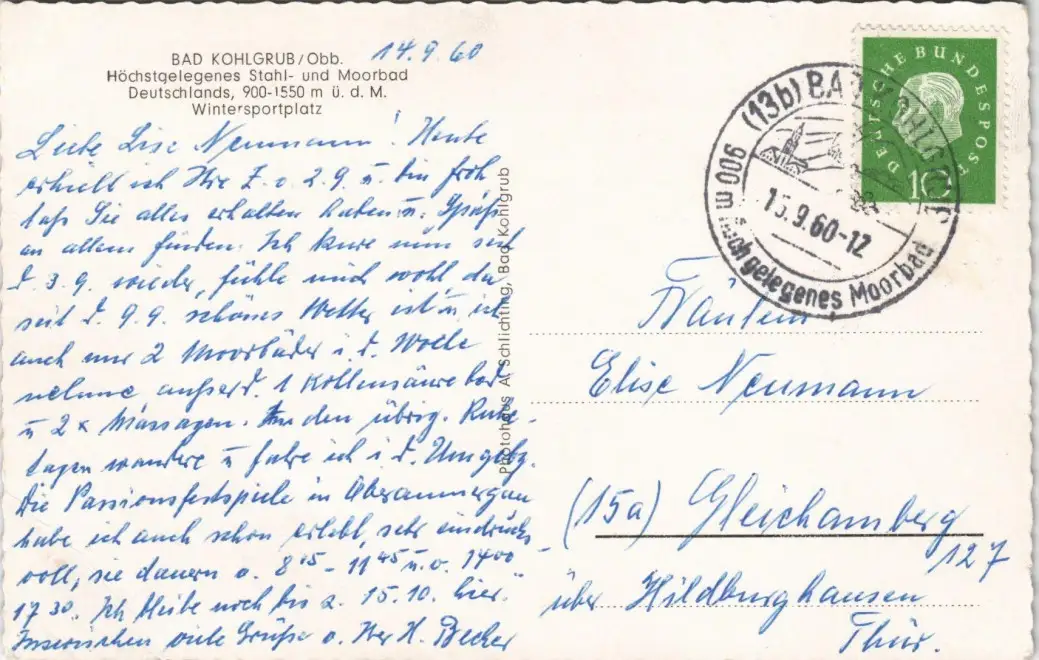 BAD KOHLGRUB/Obb. 14.9.60
Höchstgelegenes Stahl- und Moorbad
Deutschlands, 900-1550 m ü. d. M.
Wintersportplatz
Liebe Lise Neumann! Heute
erhielt ich Ihre Z. v. 2.9. u. bin froh
daß Sie alles erhalten haben u. Spaß
an allem finden. Ich kure nun seit
d. 3.9. wieder, fühle mich wohl, da
seit d. 9.9. schönes Wetter ist u. ich
auch nur 2 Moorbäder i. d. Woche
nehme, außerd. 1 Kohlensäurebad
u 2 x Massagen. An den übrig. Ruhe-
tagen wandere u fahre ich i. d. Umgebg.
Die Passionsfestspiele in Oberammergau
habe ich auch schon erlebt, sehr eindrucks-
voll, sie dauern v. 8 15 - 11 45 u. v. 14 00 -
17 30. Ich bleibe noch bis z. 15.10. hier.
Inzwischen viele Grüße v. Ihrer H. Becher
Photohaus A. Schlichting, Bad Kohlgrub
DEUTSCHE BUNDESPOST
10
(13b) BAD KOHLGRUB
900 m
15.9.60-12
gelegenes Moorbad
Fräulein
Elise Neumann
(15a) Gleichamberg
127
über Hildburghausen
Thür.